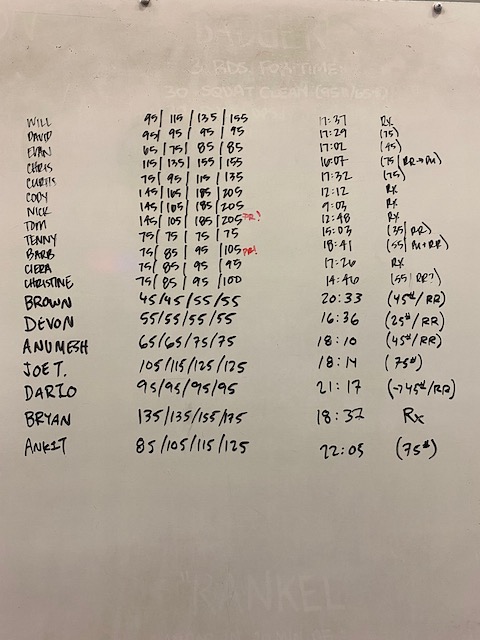 3 RDS FOR TIME
30 SQUAT CLEAN
WILL 95/ 115 /135 /155 17:37 Rx
DAVID 95/ 95 /95 /95 17:29 (75)
EVAN 65/ 75/ 85 /85 17:02 (45)
CHRIS 115/ 135/ 155 /155 16:07 (75/RR→M)
CURTIS 75 /95 /115 /135 17:32 (75)
CODY 145/165/ 185/205 12:12 Rx
NICK 145/165/ 185/205 9:03 Rx
TOM 145/165/185/205 PR! 12:48 Rx
TENNY 75/ 75 /75 /75 15:03 (35/RR)
BARB 75/ 85/ 95 /105 PR! 18:41 (55/M+RR)
CIERA 75/ 85/ 95 /95 17:26 Rx
CHRISTINE 75/ 85/ 95 /100 14:46 (55/RR?)
BROWN 45/45/55/55 20:33 (45#/RR)
DEVON 55/55/55/55 16:36 (25#/RR)
ANUMESH 65/65/75/75 18:10 (45#/RR)
JOE T. 105/115/125/125 18:14 (75#)
DARIO 95/95/95/95 21:17 (→45#/RR)
BRYAN 135/135/155/175 18:37 Rx
ANKIT 85/105/115/125 22:05 (75#)
"RANKEL